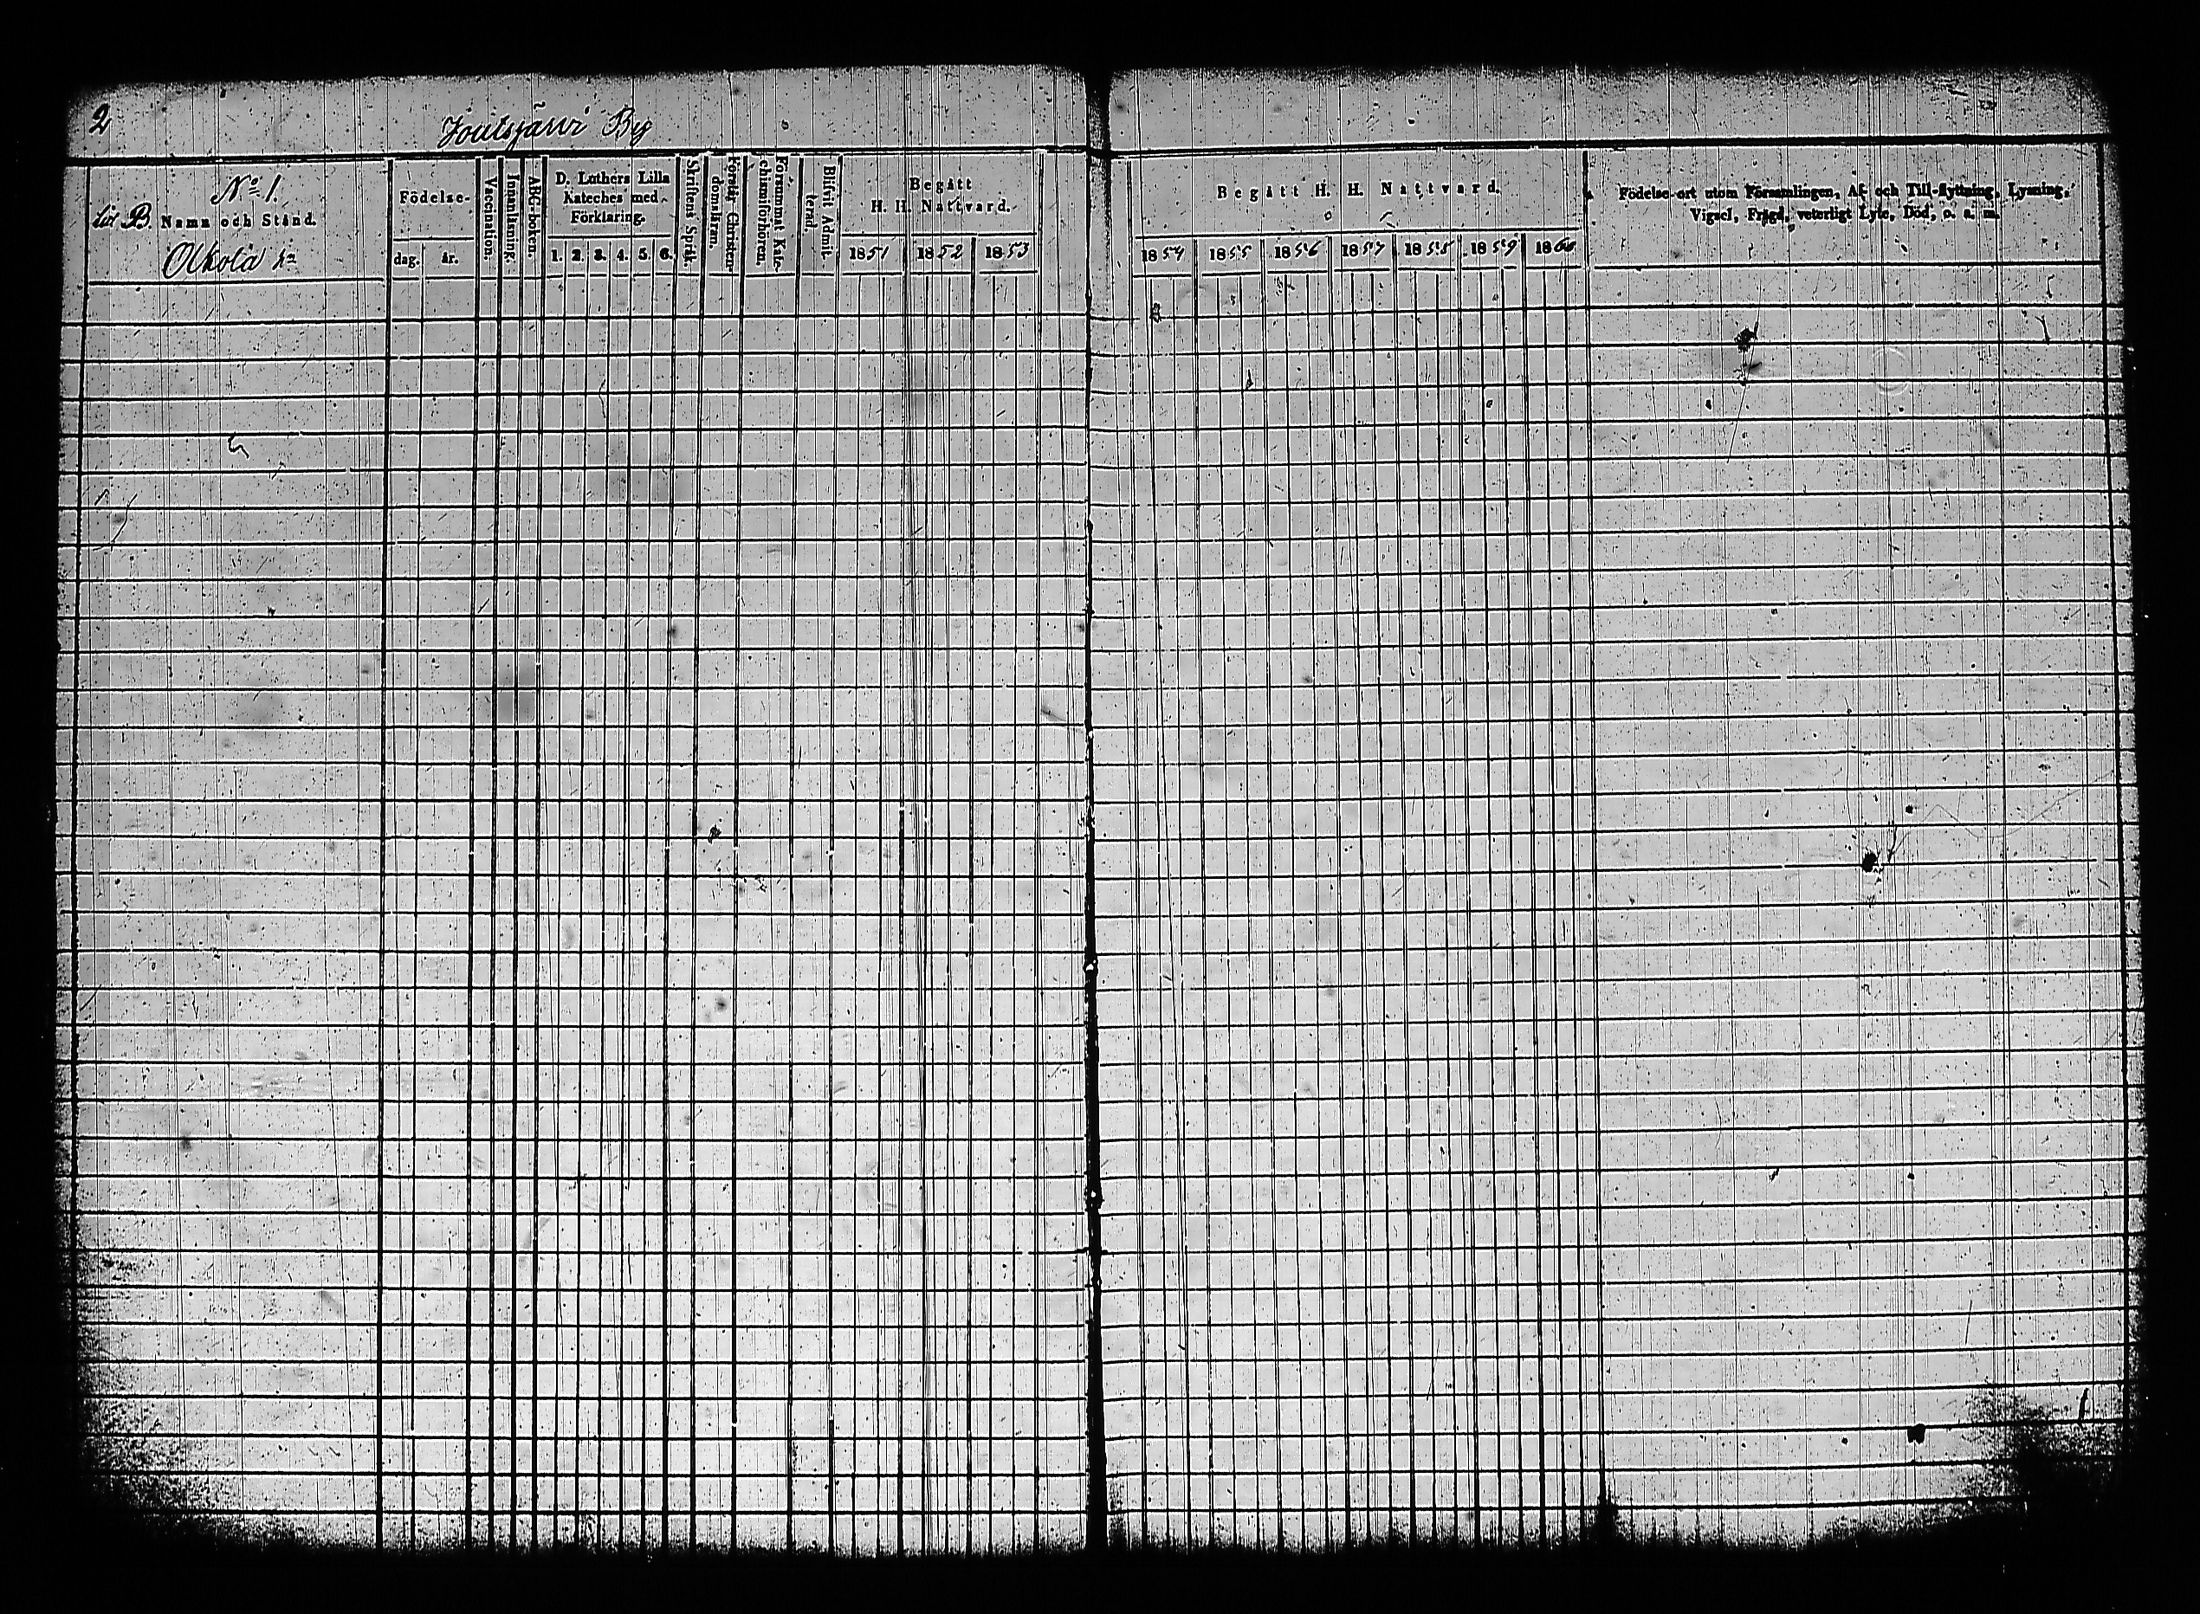 2
Joutsjärvi By
No 1.
Litt B. Namn och Stånd.
Olkola
Födelse-
dag. år.
Vaccination.
Innanläsning.
ABC-boken.
D. Luthers Lilla
Kateches med
Förklaring.
1. 2. 3. 4. 5. 6.
Skriftens Språk.
Förstår Christen-
domsläran.
Försummat Kate-
chismiförhören.
Blifvit Admit-
terad.
Begått
H. H. Nattvard.
1851 1852 1853
Begått H. H. Nattvard.
1854 1855 1856 1857 1858 1859 1860
Födelse-ort utom Församlingen, Af- och Till-flyttning, Lysning,
Vigsel, Frägd, veterligt Lyte, Död, o. s. m.